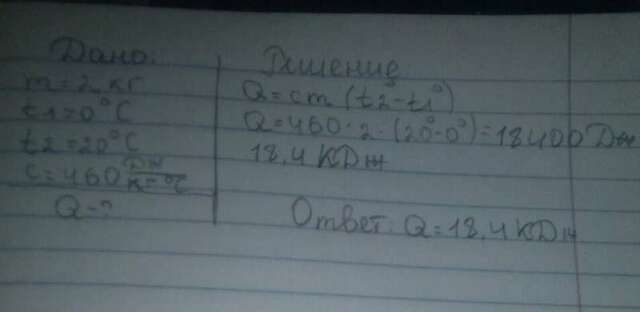 Дано:
m = 2 кг
t1 = 0°C
t2 = 20°C
c = 460 Дж/кг °C
Q - ?
Решение
Q = cm (t2 - t1°)
Q = 460 · 2 · (20° - 0°) = 18400 Дж
18,4 КДж
Ответ: Q = 18,4 КДж